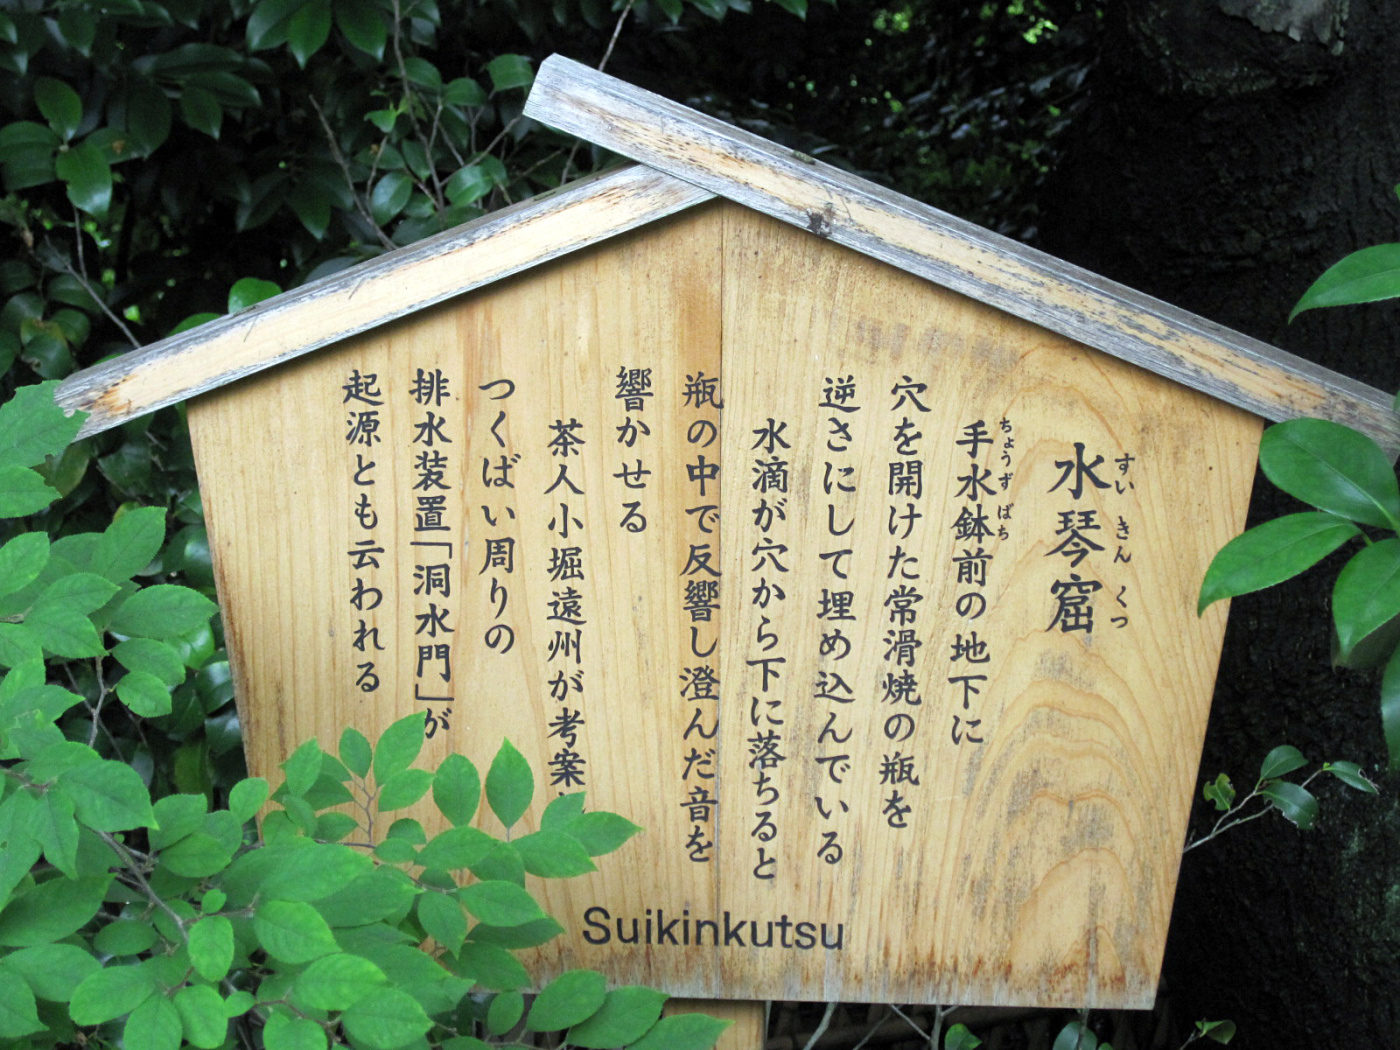 水琴窟
すいきんくつ
手水鉢前の地下に
ちょうずばち
穴を開けた常滑焼の瓶を
逆さにして埋め込んでいる
水滴が穴から下に落ちると
瓶の中で反響し澄んだ音を
響かせる
茶人小堀遠州が考案
つくばい周りの
排水装置「洞水門」が
起源とも云われる
Suikinkutsu